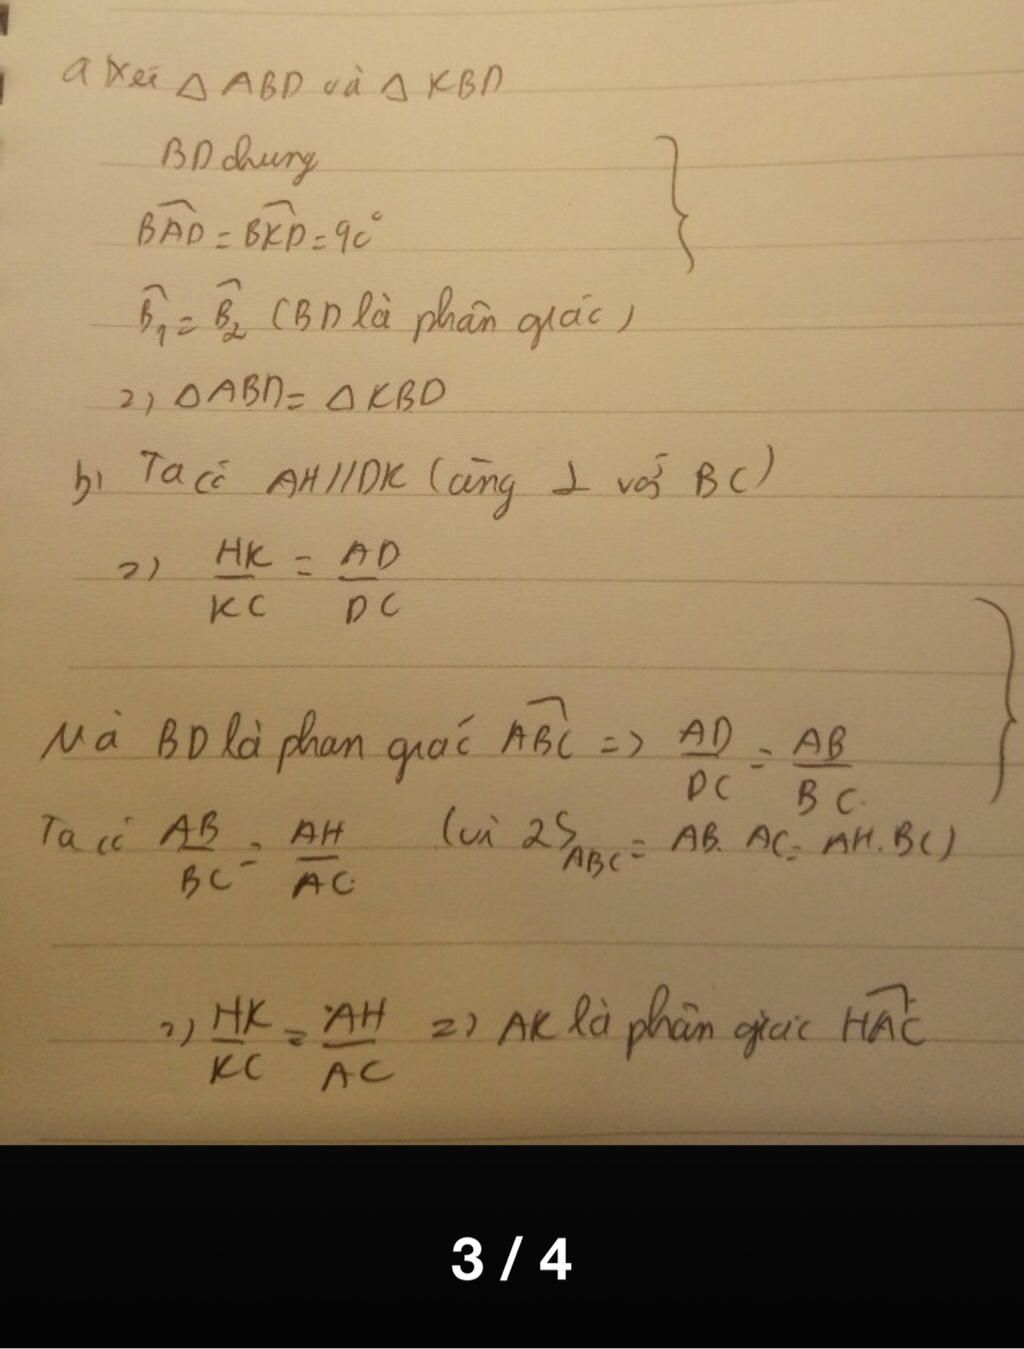 a) Xét △ ABD và △ KBD
BD chung
\widehat{BAD} = \widehat{BKD} = 90°
\widehat{B}₁ = \widehat{B}₂ (BD là phân giác)
=> △ABD = △KBD
b) Ta có AH // DK (cùng ⊥ với BC)
=> HK/KC = AD/DC
Mà BD là phan giác \widehat{ABC} => AD/DC = AB/BC
Ta có AB/BC = AH/AC (vì 2S_{ABC} = AB. AC = AH. BC)
=> HK/KC = AH/AC => AK là phân giác \widehat{HAC}
3 / 4